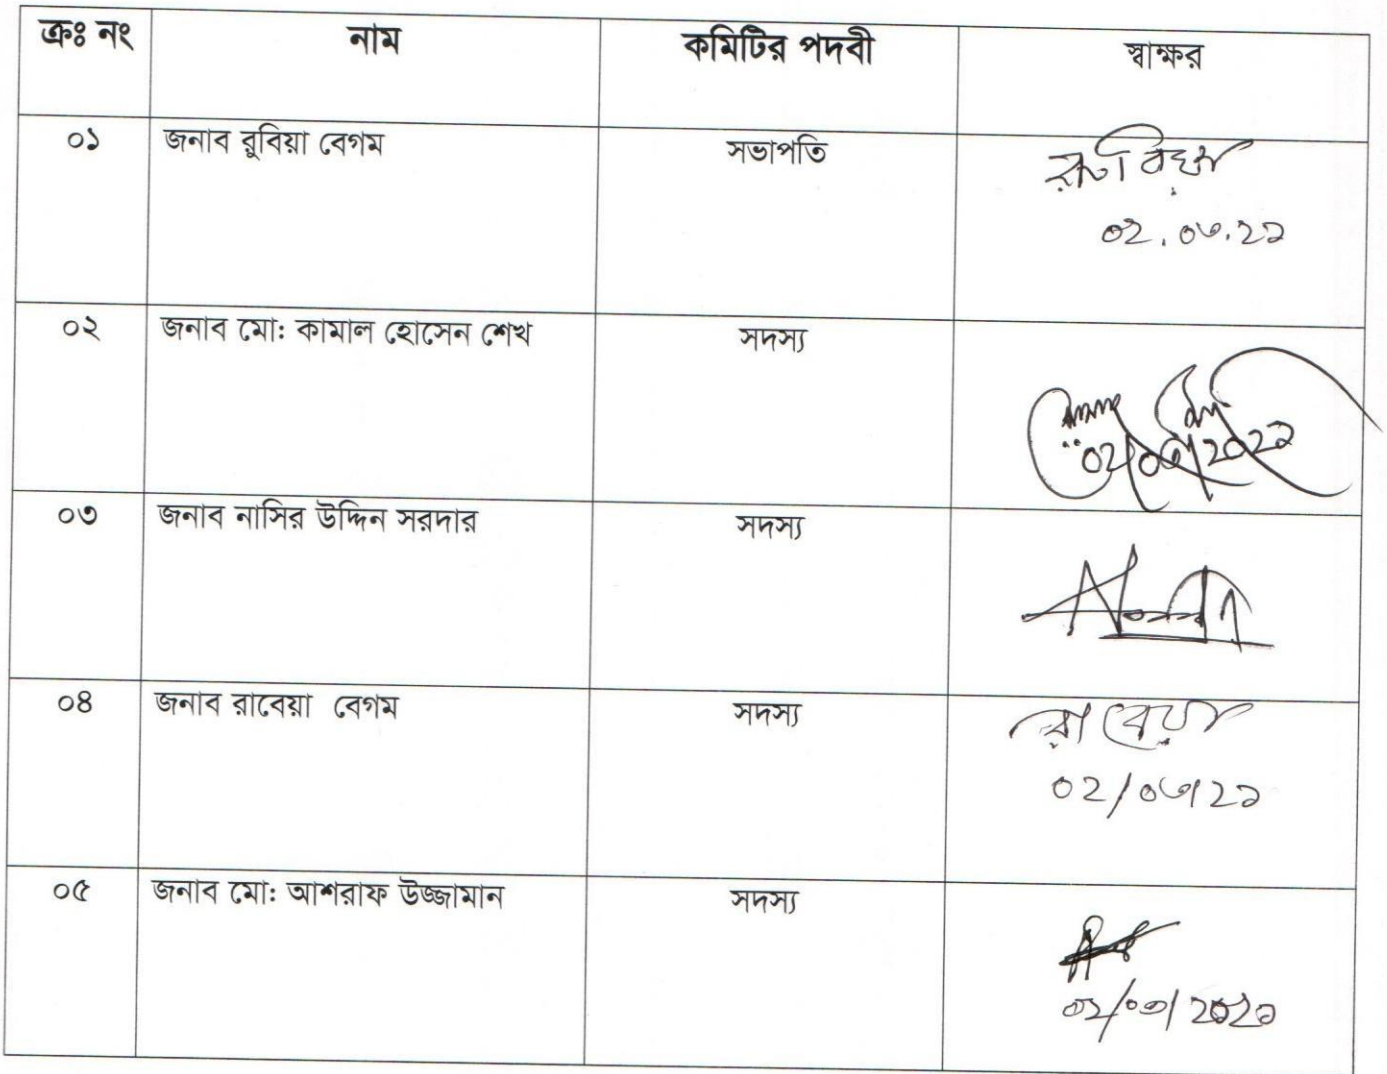 ক্রঃ নং নাম কমিটির পদবী স্বাক্ষর
০১ জনাব রুবিয়া বেগম সভাপতি
রুবিয়া
০২.০৩.২১
০২ জনাব মো: কামাল হোসেন শেখ সদস্য
০২/০৩/২০২১
০৩ জনাব নাসির উদ্দিন সরদার সদস্য
০৪ জনাব রাবেয়া বেগম সদস্য
রাবেয়া
০২/০৩/২১
০৫ জনাব মো: আশরাফ উজ্জামান সদস্য
০২/০৩/২০২১